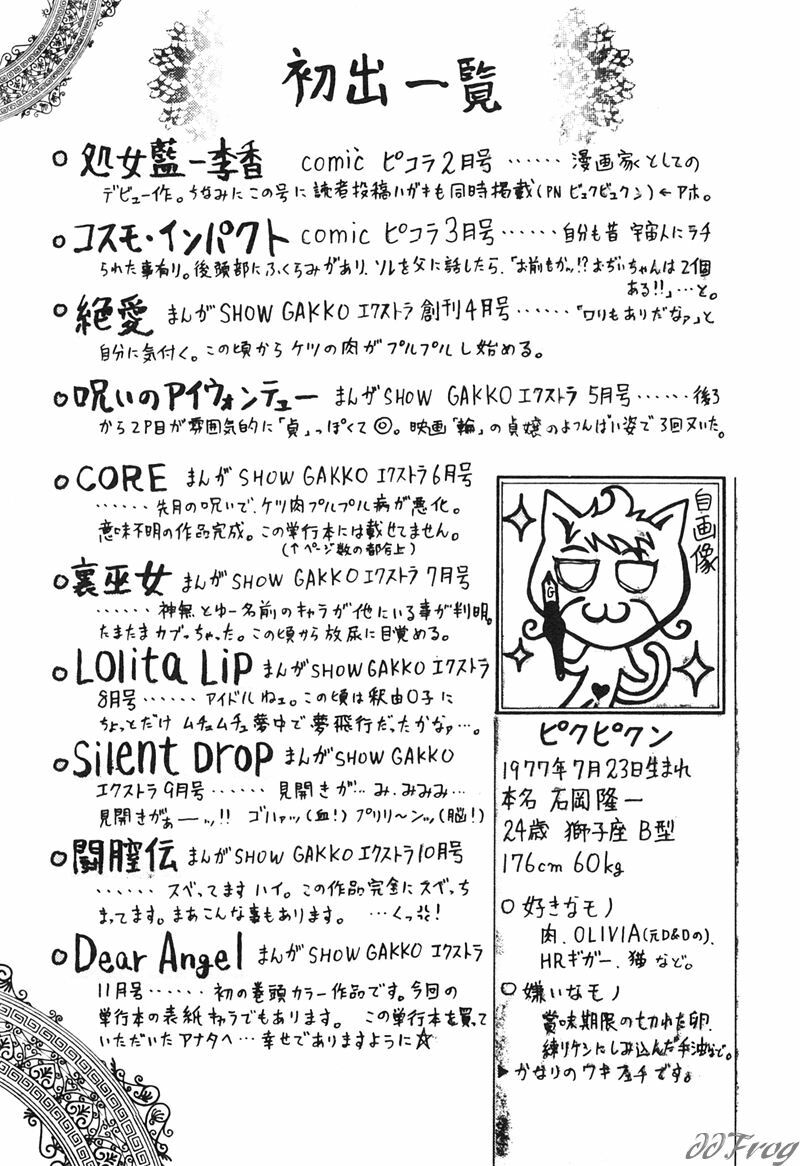 初出一覧
○ 処女藍ー李香 comic ピコラ2月号 …… 漫画家としての
デビュー作。ちなみにこの号に読者投稿ハガキも同時掲載(PN ピュクピュクン)←アホ。
○ コスモ・インパクト comic ピコラ3月号 …… 自分も昔 宇宙人にラチ
られた事有り。後頭部にふくらみがあり、ソレを父に話したら、「お前もかッ!?おぢいちゃんは2個
ある!!」…と。
○ 絶愛 まんがSHOW GAKKO エクストラ 創刊4月号 ……「ロリもありだなァ」と
自分に気付く。この頃からケツの肉がプルプルし始める。
○ 呪いのアイウォンテュー まんがSHOW GAKKO エクストラ 5月号 …… 後ろ
から2P目が雰囲気的に「貞」っぽくて◎。映画「輪」の貞嬢のよつんばい姿で3回ヌいた。
○ CORE まんがSHOW GAKKO エクストラ6月号
…… 先月の呪いで、ケツ肉プルプル病が悪化。
意味不明の作品完成。この単行本には載せてません。
(↑ページ数の都合上)
○ 裏巫女 まんがSHOW GAKKO エクストラ 7月号
…… 神無とゆー名前のキャラが他にいる事が判明。
たまたまカブっちゃった。この頃から放尿に目覚める。
○ Lolita Lip まんがSHOW GAKKO エクストラ
8月号 …… アイドルねェ。この頃は釈由○子に
ちょっとだけ ムチュムチュ夢中で夢飛行だったかなァ…。
○ Silent Drop まんがSHOW GAKKO
エクストラ9月号 …… 見開きが… み、みみみ…
見開きがぁーッ!! ゴハァッ(血!) プリリ〜ンッ(脳!)
○ 闘膣伝 まんがSHOW GAKKO エクストラ10月号
…… スベってます ハイ。この作品完全にスベっち
まってます。まあこんな事もあります。 …くっ!
○ Dear Angel まんがSHOW GAKKO エクストラ
11月号 …… 初の巻頭カラー作品です。今回の
単行本の表紙キャラでもあります。 この単行本を買って
いただいたアナタへ… 幸せでありますように☆
自画像
G
ピクピクン
1977年7月23日生まれ
本名 石岡隆一
24歳 獅子座 B型
176cm 60kg
○ 好きなモノ
肉、OLIVIA(元D&Dの)、
HRギガー、猫 など。
○ 嫌いなモノ
賞味期限の切れた卵、
練りケシにしみ込んだ手油など。
▶かなりのワキフェチです。
JJFrog